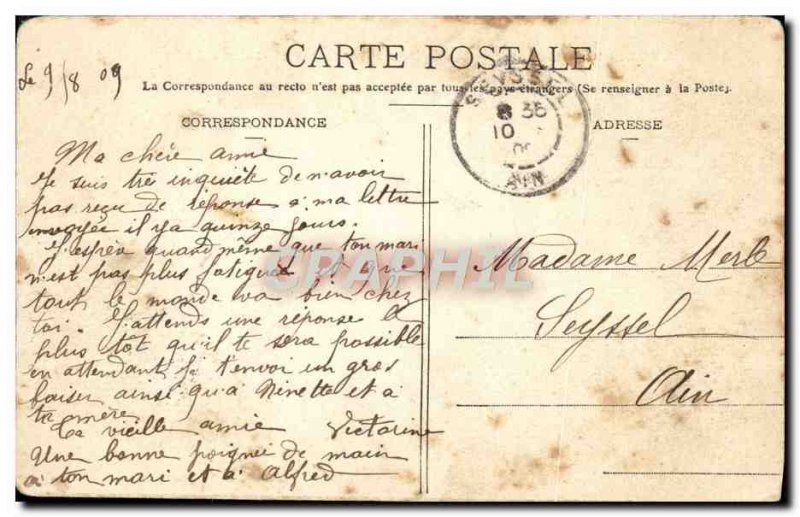 Le 9/8 09
CARTE POSTALE
La Correspondance au recto n'est pas acceptée par tous les pays étrangers (Se renseigner à la Poste).
CORRESPONDANCE
Ma chère amie
Je suis très inquiète de n'avoir
pas reçu de réponse à ma lettre
envoyée il y a quinze jours.
J'espèr quand même que ton mari
n'est pas plus fatigué et que
tout le monde va bien chez
toi. J'attends une réponse le
plus tôt qu'il te sera possible
en attendant je t'envoi un gros
baiser ainsi qu'à Ninette et à
ta mère
Ta vieille amie Victorine
Une bonne poignée de main
à ton mari et à Alfred
SEYSSEL
8 35
10
AIN
ADRESSE
Madame Merle
Seyssel
Ain
CPAPHIL